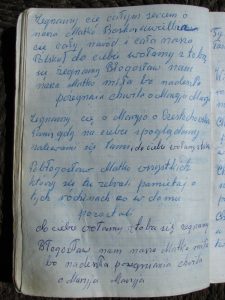 Żegnamy cię całym sercem o
nasza Matko
cię cały naród i cała nasza
Polska do ciebie wołamy z tobą
się żegnamy Błogosław nam
nasza Matko miła bo nadeszła
pożegnania chwila o Maryjo Maryjo
Żegnamy cię o Maryjo z Częstochowy
gdy na ciebie spoglądamy
zalewami się łzami do ciebie wołamy
Pobłogosław Matko wszystkich
którzy się tu zebrali pamiętaj o
tych rodzinach co w domu
pozostali
do ciebie wołamy z tobą się żegnamy
Błogosław nam nasza Matko miła
bo nadeszła pożegnania chwila
o Maryja Maryja